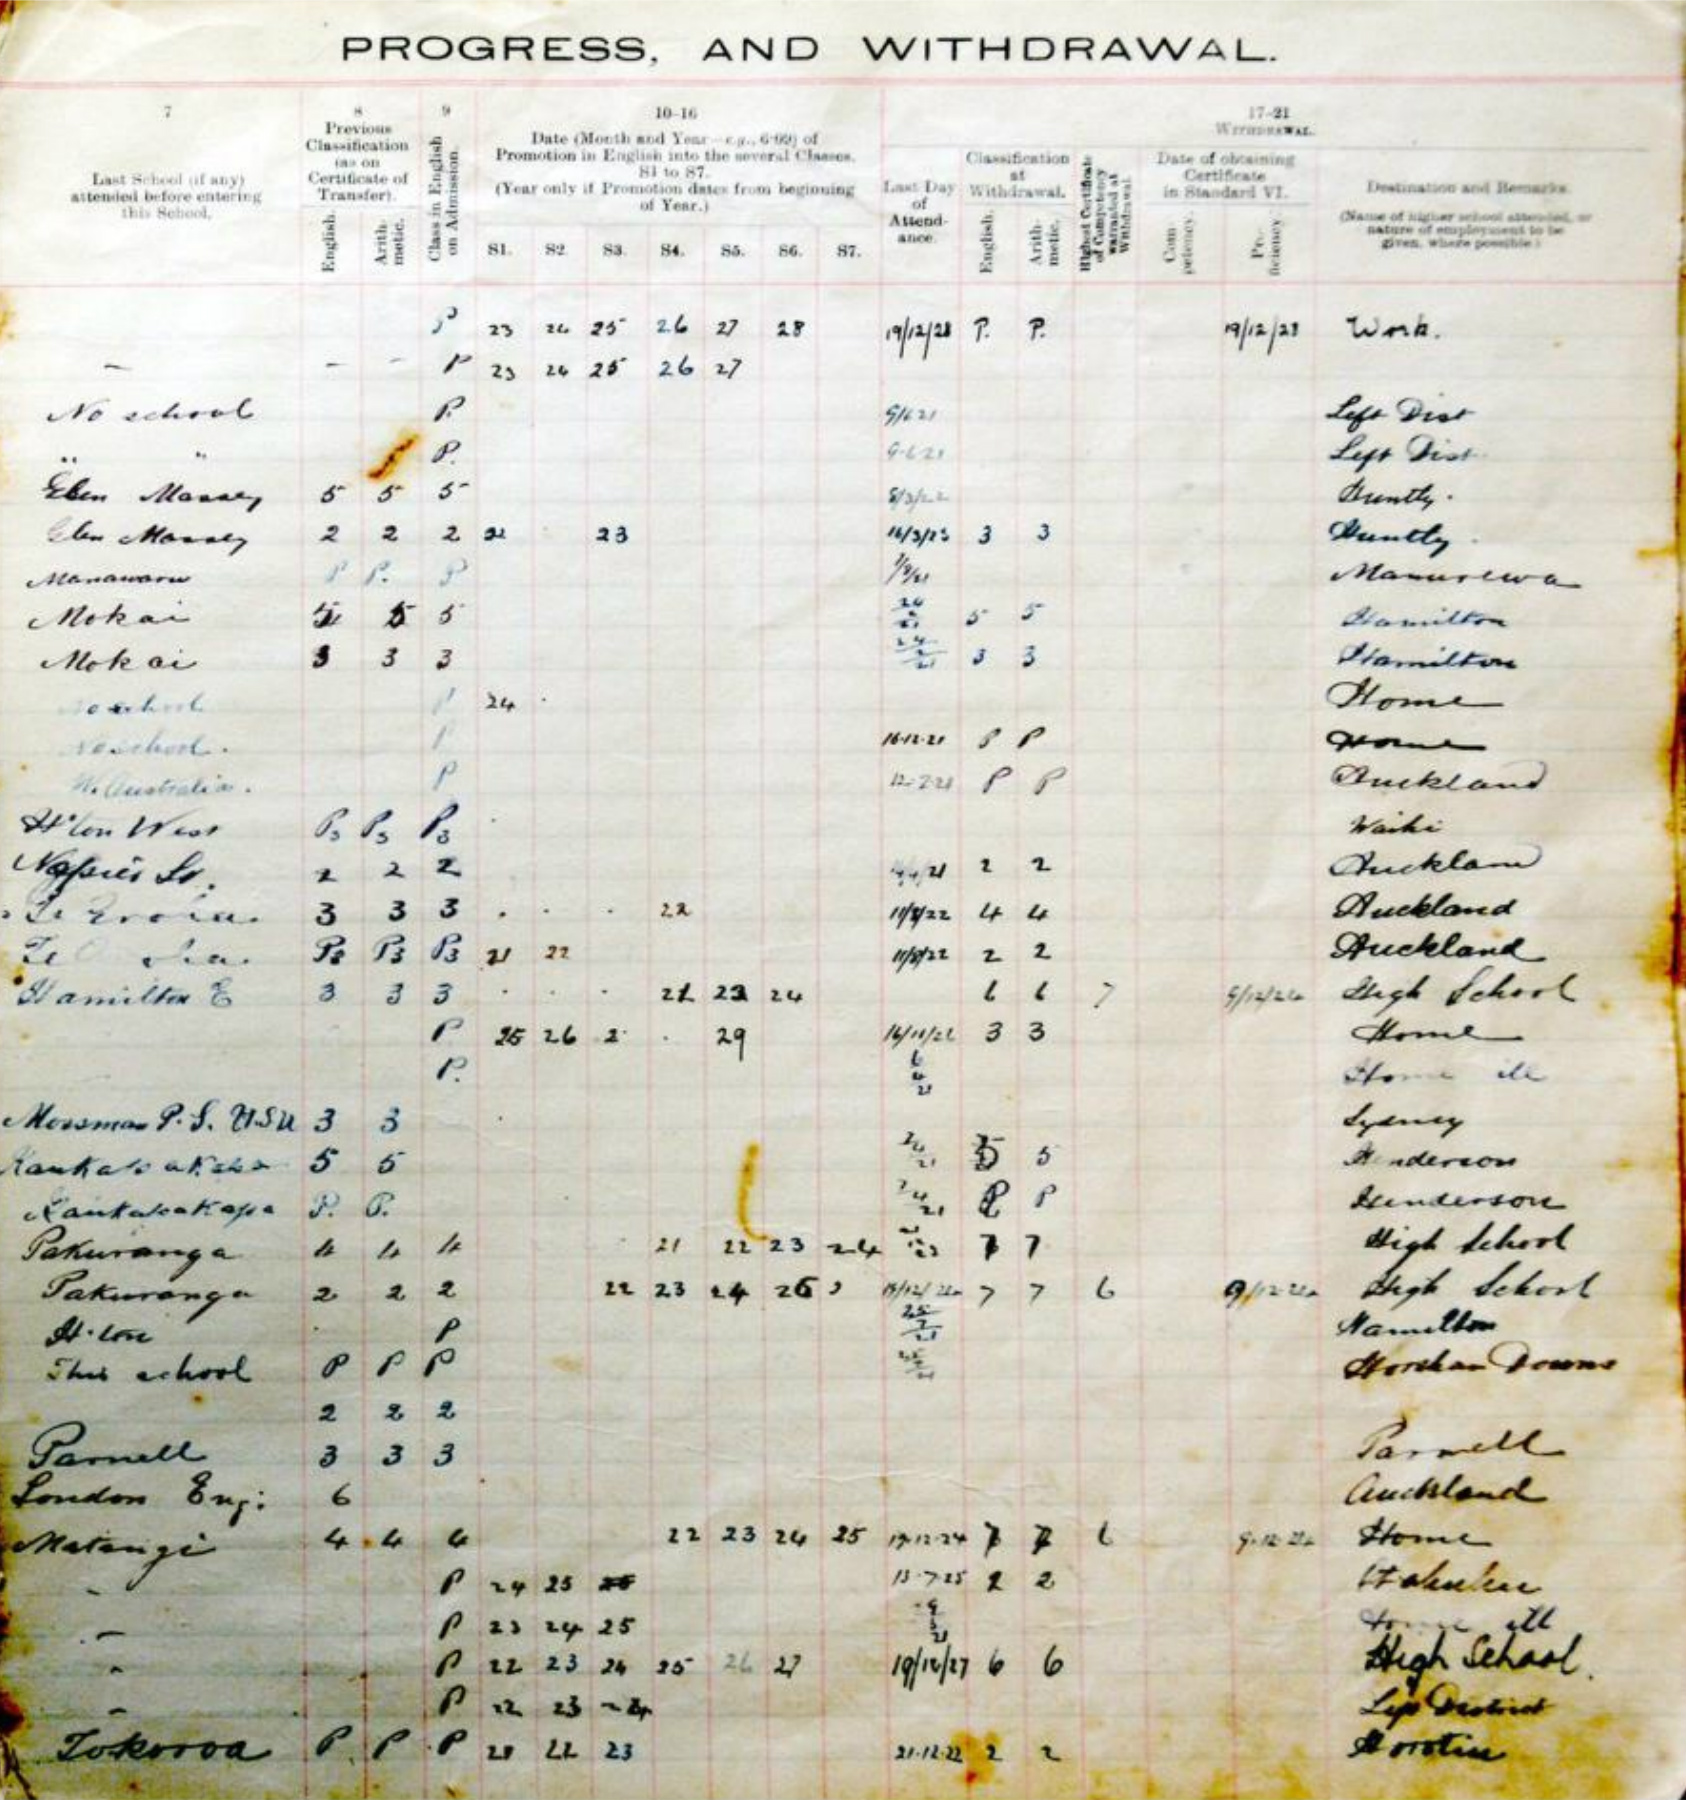 PROGRESS, AND WITHDRAWAL.
7 8 9 10-16 17-21
Last School (if any) attended before entering this School.
Previous Classification (as on Certificate of Transfer).
English. Arithmetic.
Class in English on Admission.
Date (Month and Year—e.g., 6·99) of Promotion in English into the several Classes, S1 to S7.
(Year only if Promotion dates from beginning of Year.)
S1. S2. S3. S4. S5. S6. S7.
WITHDRAWAL.
Last Day of Attendance.
Classification at Withdrawal.
English. Arithmetic.
Highest Certificate of Competency warranted at Withdrawal.
Date of obtaining Certificate in Standard VI.
Competency. Proficiency.
Destination and Remarks.
(Name of higher school attended, or nature of employment to be given, where possible.)
P 23 24 25 26 27 28 19/12/28 P. P. 19/12/28 Work.
– – – P 23 24 25 26 27
No school P. Left Dist
" " P. Left Dist
Glen Massey 5 5 5 Huntly.
Glen Massey 2 2 2 23 3 3 Huntly.
Manawaru P P. P Manurewa
Mokai 5 5 5 5 Hamilton
Mokai 3 3 3 3 3 Hamilton
No school P 24 Home
No school. P 16.12.21 P P Home
W. Australia. P P P Auckland
H'ton West P3 P3 P3 Waihi
Napier St. 2 2 2 2 2 Auckland
3 3 3 22 11/8/22 4 4 Auckland
Te P3 P3 P3 21 22 11/8/22 2 2 Auckland
Hamilton E 3 3 3 24 6 6 7 High School
P 25 26 2 29 3 3 Home
P. Home ill
Mossman P.S. 3 3 Sydney
5 5 5 Henderson
Kaukakakapa P. P. P Henderson
Pakuranga 4 4 4 21 22 23 24 7 7 High School
Pakuranga 2 2 2 22 23 24 7 7 6 High School
H.ton P Hamilton
This school P P P Horsham Downs
2 2 2
Parnell 3 3 3 Parnell
London Eng: 6 Auckland
Matangi 4 4 4 22 23 24 25 7 7 6 Home
– P 24 25 13.7.25 2 2
– P 23 24 25 ill
– P 22 23 24 25 26 27 19/12/27 6 6 High School.
– P 22 23 24 Left District
Tokoroa P P P 22 23 21.12.22 2 2